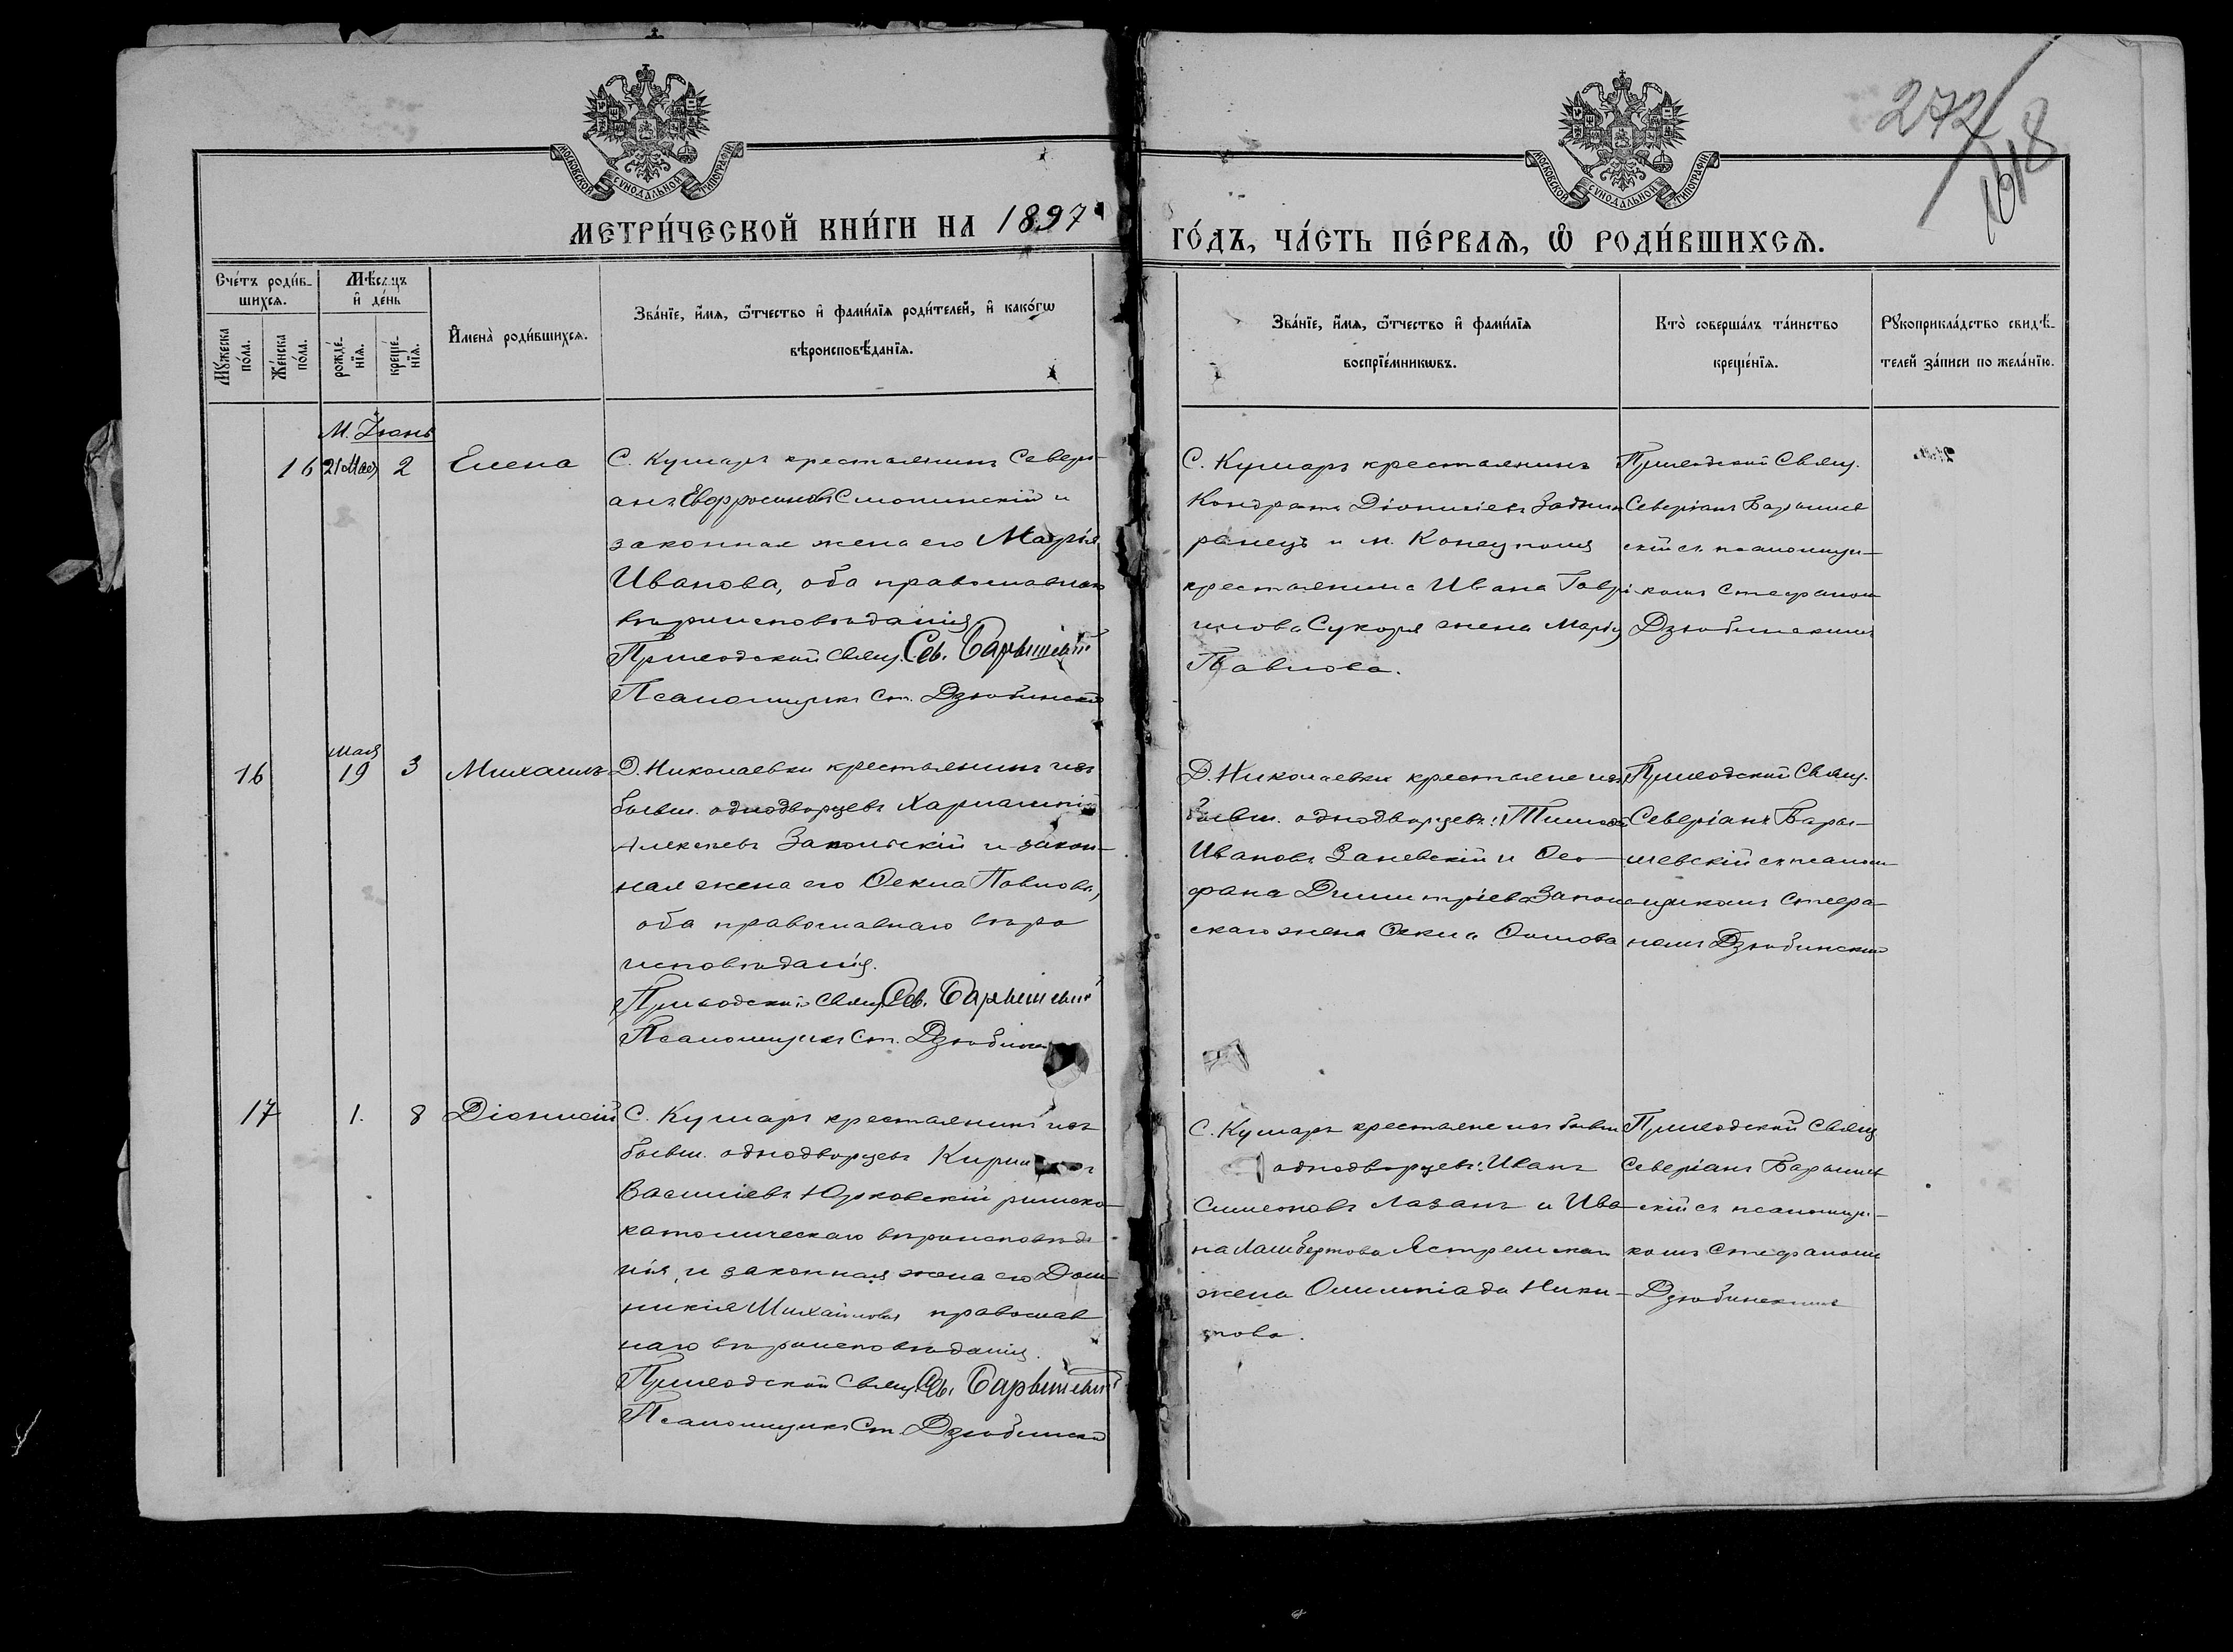 272
1618
МОСКОВСКОЙ СѴНОДАЛЬНОЙ ТИПОГРАФІИ
МОСКОВСКОЙ СѴНОДАЛЬНОЙ ТИПОГРАФІИ
МЕТРИ́ЧЕСКОЙ КНИ́ГИ НА 1897
ГО́ДЪ, ЧА́СТЬ ПЕ́РВАѦ, Ѡ҆ РОДИ́ВШИХСѦ.
Сче́тъ роди́в-
шихсѧ.
Мѣ́сѧцъ
и҆ де́нь
Мꙋ́жеска по́ла.
Же́нска по́ла.
рожде́-нїѧ.
креще́-нїѧ.
И҆мена̀ роди́вшихсѧ.
Зва́нїе, и҆́мѧ, ѻ҆́тчество и҆ фами́лїѧ роди́телей, и҆ како́гѡ
вѣроисповѣ́данїѧ.
Зва́нїе, и҆́мѧ, ѻ҆́тчество и҆ фами́лїѧ
воспрїе́мникѡвъ.
Кто̀ соверша́лъ та́инство
креще́нїѧ.
Рꙋкоприкла́дство свидѣ́-
телей за́писи по жела́нїю.
М. Іюнь
16 21 Мая 2 Елена
С. Кумаръ крестьянинъ Севері-
анъ Евфросиновъ Смолинскій и
законная жена его Марія
Иванова, оба православнаго
вѣроисповѣданія.
Приходскій Свящ. Сев. Барышевскій
Псаломщикъ Ст. Дзюбинскій
С. Кумаръ крестьянинъ
Кондратъ Діонисіевъ
и м.
крестьянина Ивана Гаври-
лова жена Марія
Павлова.
Приходскій Свящ.
Северіанъ Барышев
скій съ псаломщи-
комъ Стефаномъ
Дзюбинскимъ
16 Мая 19 3 Михаилъ
Д. Николаевки крестьянинъ изъ
бывш. однодворцевъ Харлампій
Алексѣевъ и закон-
ная жена его Ѳекла Павлова,
оба православнаго вѣро
исповѣданія.
Приходскій Свящ. Сев. Барышевскій
Псаломщикъ Ст. Дзюбинс
Д. Николаевки крестьяне изъ
бывш. однодворцевъ:
Ивановъ Заневскій и Ѳео-
фана Димитріева
скаго жена Ѳекла
Приходскій Свящ.
Северіанъ Бары-
шевскій съ псалом-
щикомъ Стефа-
номъ Дзюбинским
17 1. 8 Діонисій
С. Кумаръ крестьянинъ изъ
бывш. однодворцевъ
Василіевъ Юрковскій римско-
католическаго вѣроисповѣда
нія, и законная жена его Дом-
никія Михайлова православ
наго вѣроисповѣданія.
Приходскій Свящ. Сев. Барышевскій
Псаломщикъ Ст. Дзюбинскій
С. Кумаръ крестьяне изъ бывш
однодворцевъ: Иванъ
Симеоновъ Лазанъ и Ива-
на Ламбертова
жена Олимпіада Ники-
това.
Приходскій Свящ
Северіанъ Барышев
скій съ псаломщи-
комъ Стефаномъ
Дзюбинскимъ